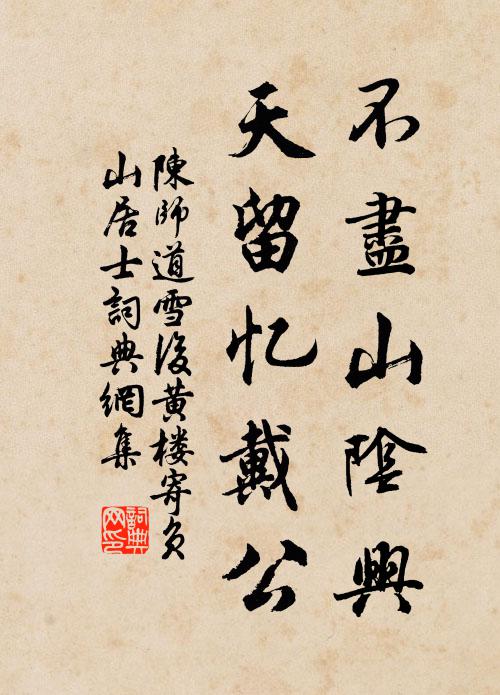 不盡山陰興
天留忆戴公
陳師道雪後黄楼寄負
山居士詞典網集
詞典
网印